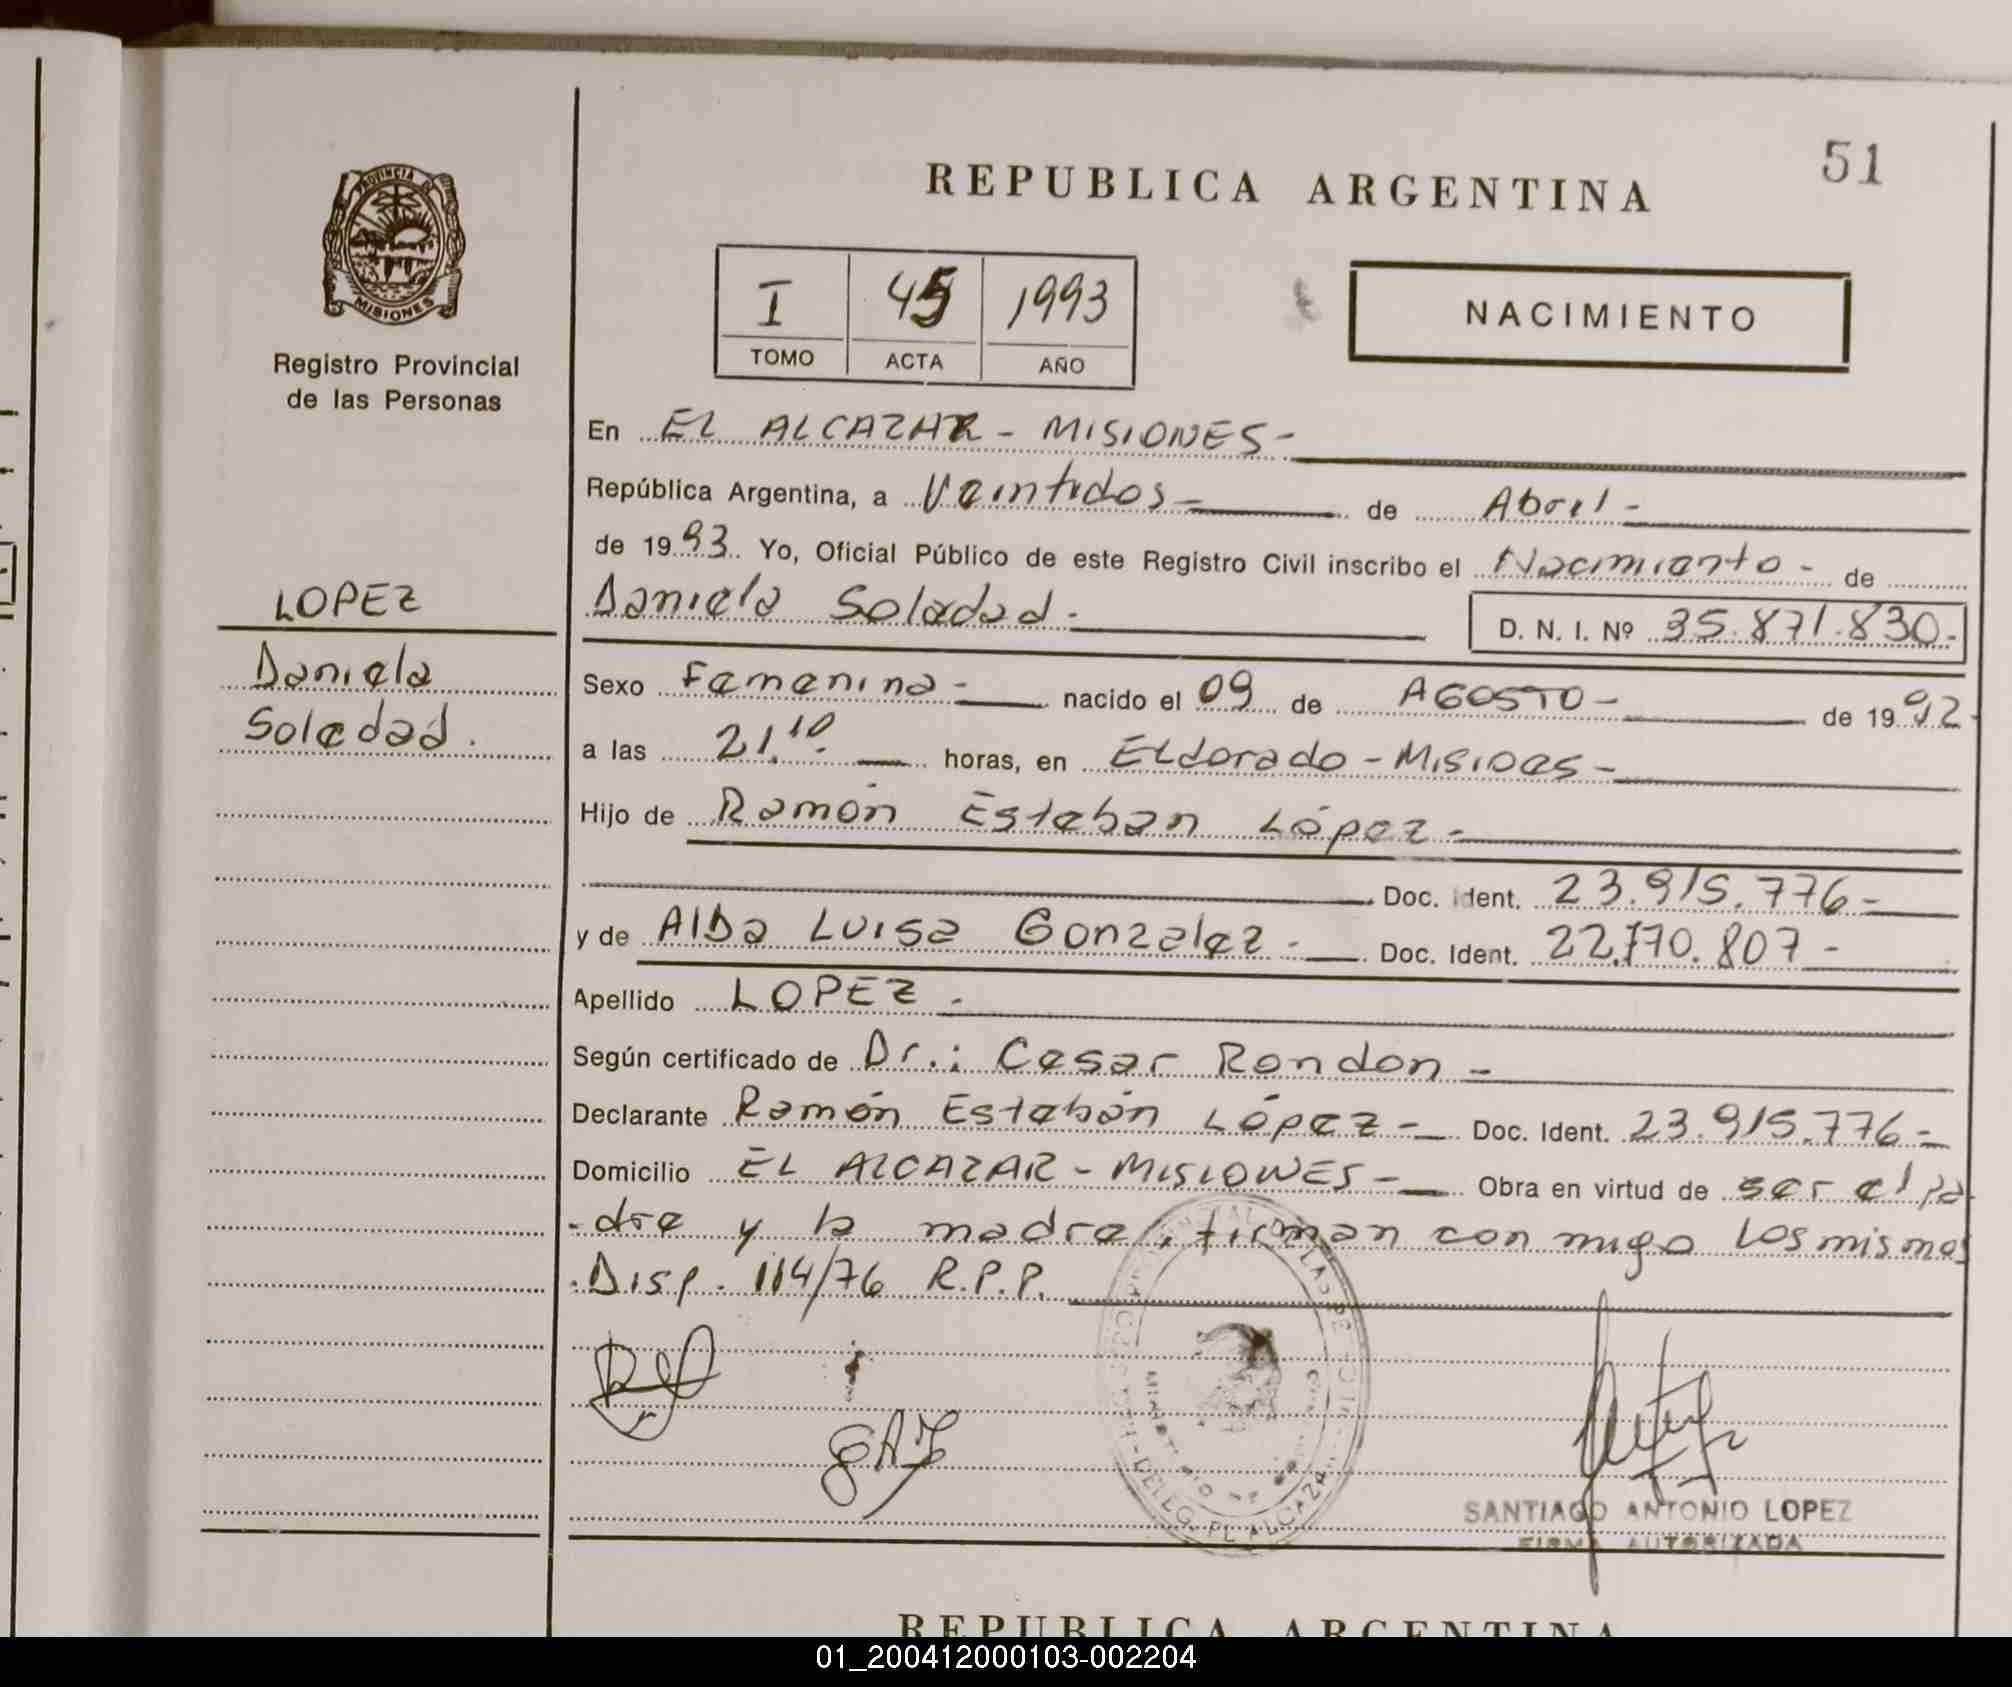 51
REPUBLICA ARGENTINA
PROVINCIA DE
MISIONES
Registro Provincial
de las Personas
I 45 1993
TOMO ACTA AÑO
NACIMIENTO
En EL ALCAZAR - MISIONES -
República Argentina, a Veintidos - de Abril -
de 1993. Yo, Oficial Público de este Registro Civil inscribo el Nacimiento - de
Daniela Soledad -
D. N. I. Nº 35.871.830.-
LOPEZ
Daniela
Soledad.
Sexo Femenina - nacido el 09 de AGOSTO - de 1992-
a las 21.10. horas, en Eldorado - Misioes -
Hijo de Ramón Esteban López -
Doc. Ident. 23.915.776-
y de Alba Luisa Gonzalez - Doc. Ident. 22.170.807 -
Apellido LOPEZ -
Según certificado de Dr.: Cesar Rondon -
Declarante Ramón Estebán López - Doc. Ident. 23.915.776-
Domicilio EL ALCAZAR - MISIONES - Obra en virtud de ser el pa-
-dre y la madre, firman con migo los mismos
.Disp. 114/76 R.P.P.
SANTIAGO ANTONIO LOPEZ
FIRMA AUTORIZADA
REPUBLICA ARGENTINA
01_200412000103-002204